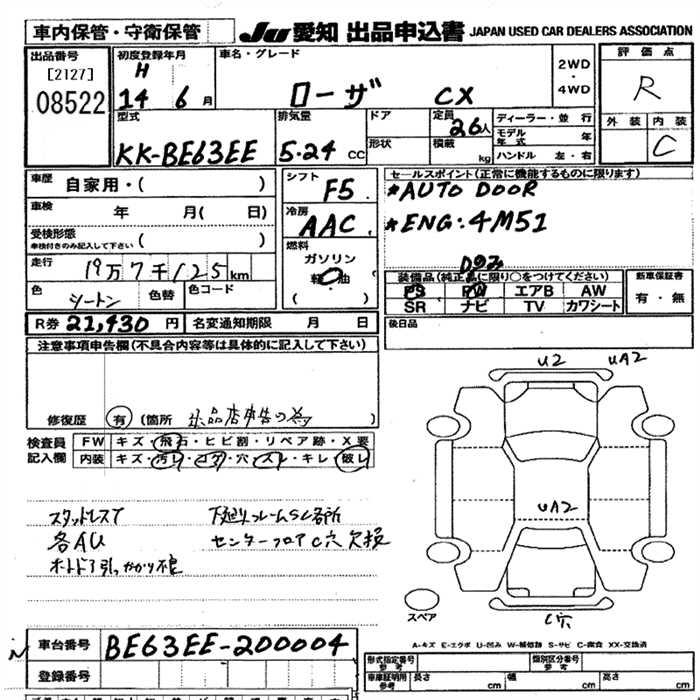 車内保管・守衛保管
JU 愛知 出品申込書 JAPAN USED CAR DEALERS ASSOCIATION
出品番号
[2127]
08522
初度登録年月
H
14 6月
車名・グレード
ローザ CX
2WD
・
4WD
評価点
R
外装 内装
C
型式
KK-BE63EE
排気量
5.24 CC
ドア
形状
定員
26人
積載 kg
ディーラー・並行
モデル年式 年
ハンドル 左・右
車歴 自家用・( )
車検 年 月( 日)
受検形態
車検付きのみ記入して下さい ( )
走行 19万7千125km
色 ツートン 色替 色コード
シフト
F5
冷房
AAC
燃料
ガソリン
軽油
セールスポイント(正常に機能するものに限ります)
*AUTO DOOR
*ENG:4M51
Dのみ
装備品(純正品に限り○をつけてください)
PS PW エアB AW
SR ナビ TV カワシート
新車保証書
有・無
R券 21,430円 名変通知期限 月 日
後日品
注意事項申告欄(不具合内容等は具体的に記入して下さい)
修復歴 有 (箇所 出品店申告の為)
検査員 FW キズ・飛石・ヒビ割・リペア跡・X要
記入欄 内装 キズ・汚レ・コゲ・穴・スレ・キレ・破レ
スタッドレスT
各AU
オートドア引っかかり有
下廻りフレームSC各所
センターフロアC穴欠損
U2 UA2
UA2
C穴
スペア
A-キズ E-エクボ U-凹み W-補修跡 S-サビ C-腐食 XX-交換済
車台番号 BE63EE-200004
登録番号
型式指定番号
参考
類別区分番号
参考
車庫証明用
参考
長さ cm 幅 cm 高さ cm